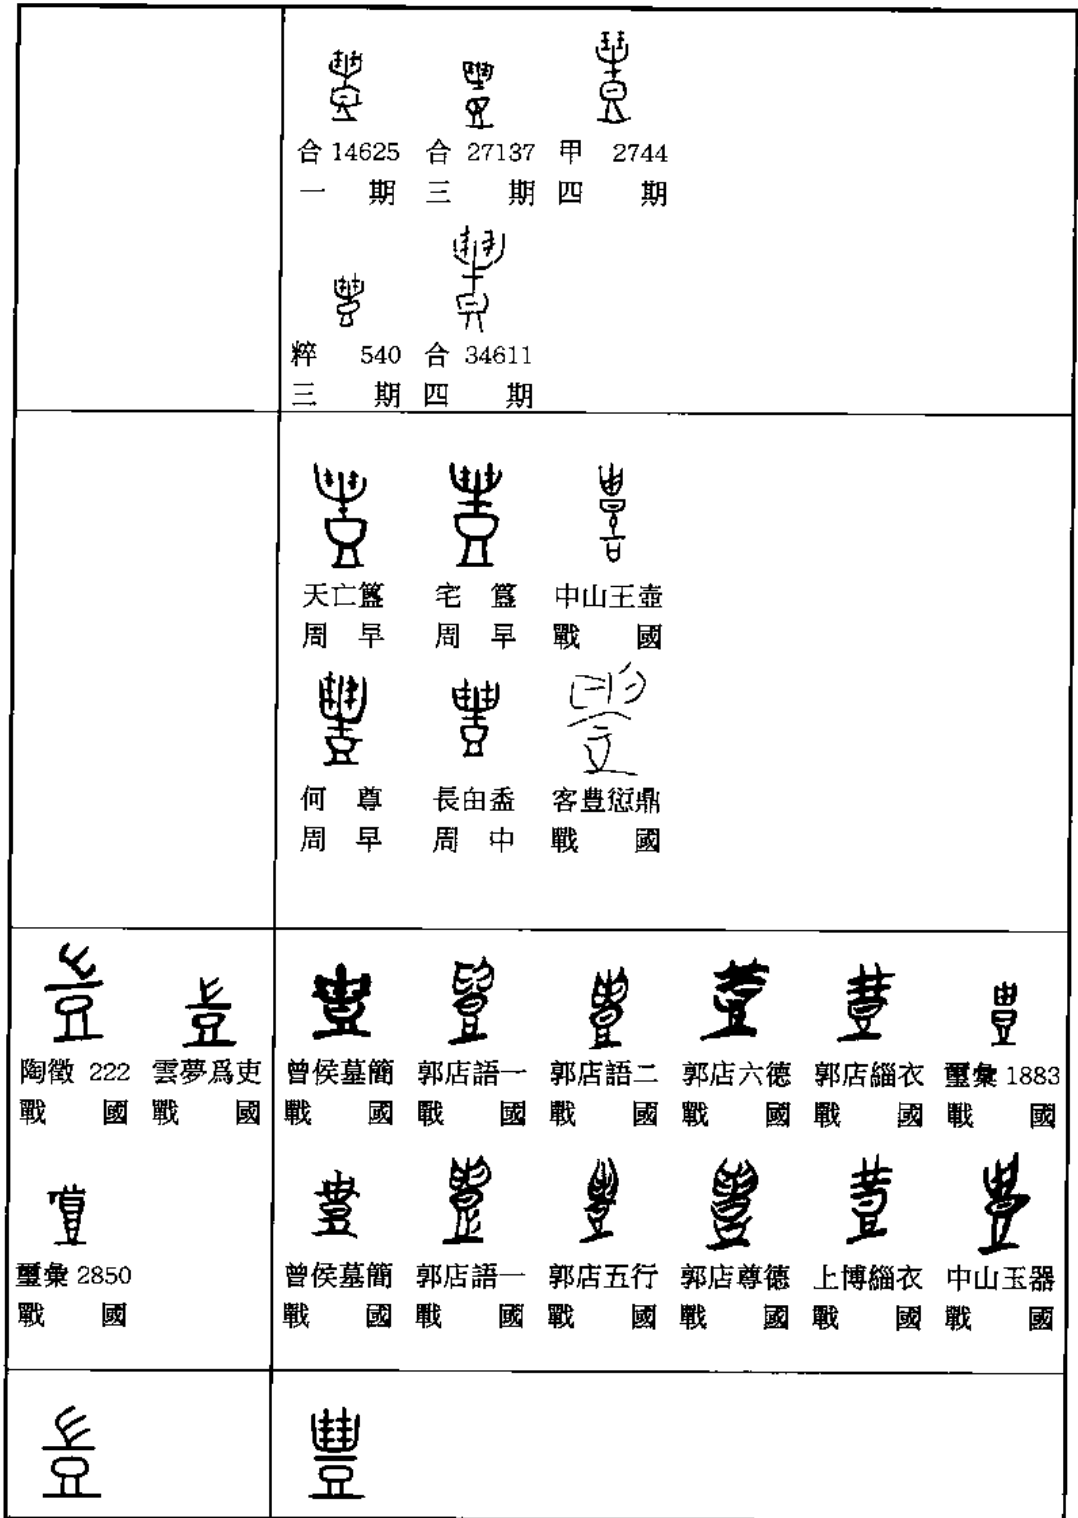 合 14625 合 27137 甲 2744
一 期 三 期 四 期
粹 540 合 34611
三 期 四 期
天亡簋 宅 簋 中山王壺
周 早 周 早 戰 國
何 尊 長由盉 客豊愆鼎
周 早 周 中 戰 國
陶徵 222 雲夢爲吏 曾侯墓簡 郭店語一 郭店語二 郭店六德 郭店緇衣 璽彙 1883
戰 國 戰 國 戰 國 戰 國 戰 國 戰 國 戰 國 戰 國
璽彙 2850 曾侯墓簡 郭店語一 郭店五行 郭店尊德 上博緇衣 中山玉器
戰 國 戰 國 戰 國 戰 國 戰 國 戰 國 戰 國